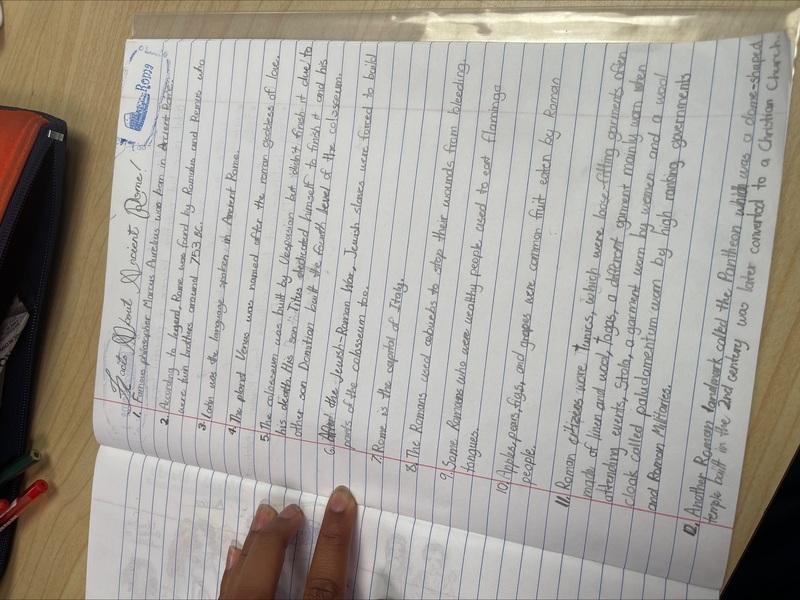 Roma
Facts About Ancient Rome!
1. Famous philosopher Marcus Aurelius was born in Ancient Rome.
2. According to legend, Rome was found by Romulus and Remus who
were twin brothers around 753 BC.
3. Latin was the language spoken in Ancient Rome.
4. The planet Venus was named after the roman goddess of love.
5. The colosseum was built by Vespasian but didn't finish it due to
his death. His son Titus dedicated himself to finish it and his
other son Domitian built the fourth level of the colosseum.
6. After the Jewish-Roman War, Jewish slaves were forced to build
parts of the colosseum too.
7. Rome is the capital of Italy.
8. The Romans used cobwebs to stop their wounds from bleeding.
9. Some Romans who were wealthy people used to eat flamingo
tongues.
10. Apples, pears, figs, and grapes were common fruit eaten by Roman
people.
11. Roman citizens wore tunics, which were loose-fitting garments often
made of linen and wool, togas, a different garment mainly worn when
attending events, Stola, a garment worn by women and a wool
cloak called paludamentum worn by high ranking governments
and Roman Militaries.
12. Another Roman landmark called the Pantheon which was a dome-shaped
temple built in the 2nd century was later converted to a Christian Church